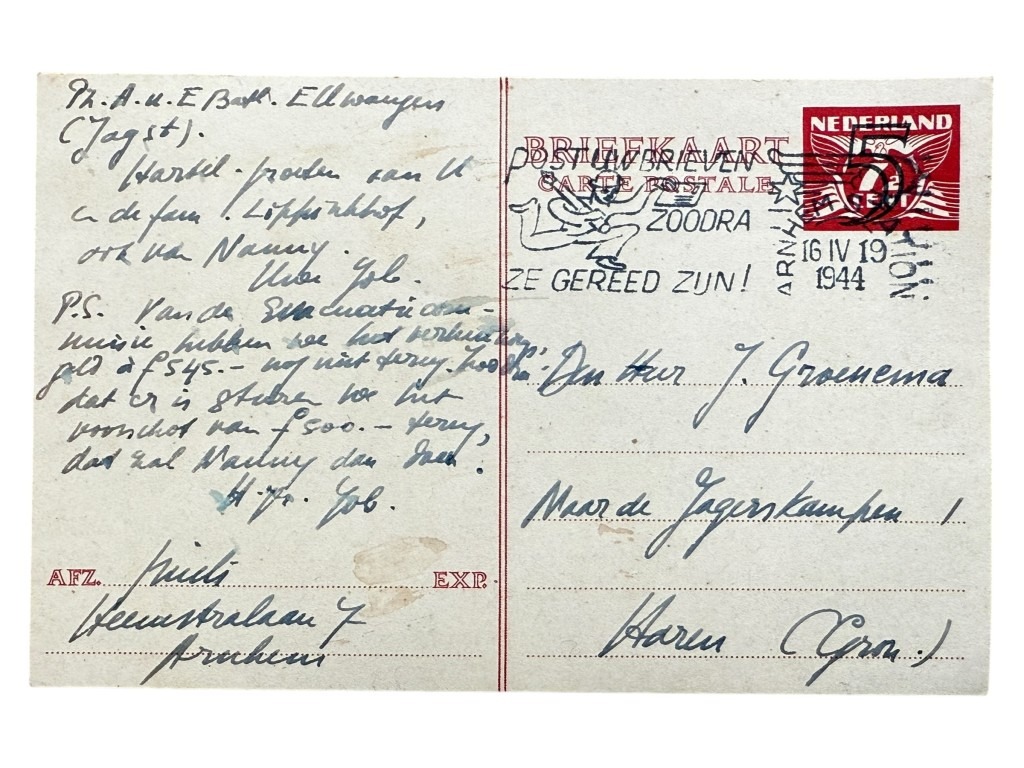 Ph. A. u. E Bath. Ellwangen
(Jagst).
Hartel. groeten aan U
en de fam. Lippinkhof,
ook van Nanny.
Uwe Job.
P.S. Van de Evacuatiecom-
missie hebben we het verhuizings-
geld à f 545.- nog niet terug. Zoodra
dat er is sturen we het
voorschot van f 500.- terug,
dat zal Nanny dan doen.
H. gr. Job.
AFZ. EXP.
Heemstralaan 7
Arnhem
BRIEFKAART
CARTE POSTALE
NEDERLAND
5
7½ CENT
POST UW BRIEVEN
ZOODRA
ZE GEREED ZIJN!
ARNHEM STATION
16 IV 19
1944
Den Heer J. Groenema
Maar de Jagerskampen 1
Haren (Gron.)